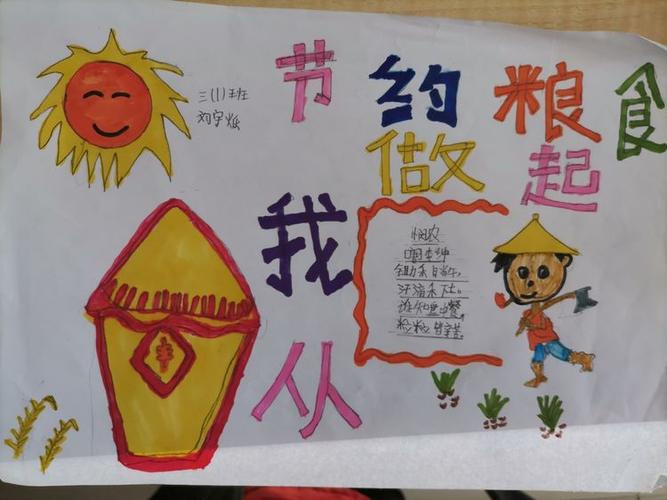 节约粮食
三(1)班
刘宇
做起
我
从
悯农
唐李绅
锄禾日当午,
汗滴禾下土。
谁知盘中餐,
粒粒皆辛苦。
丰